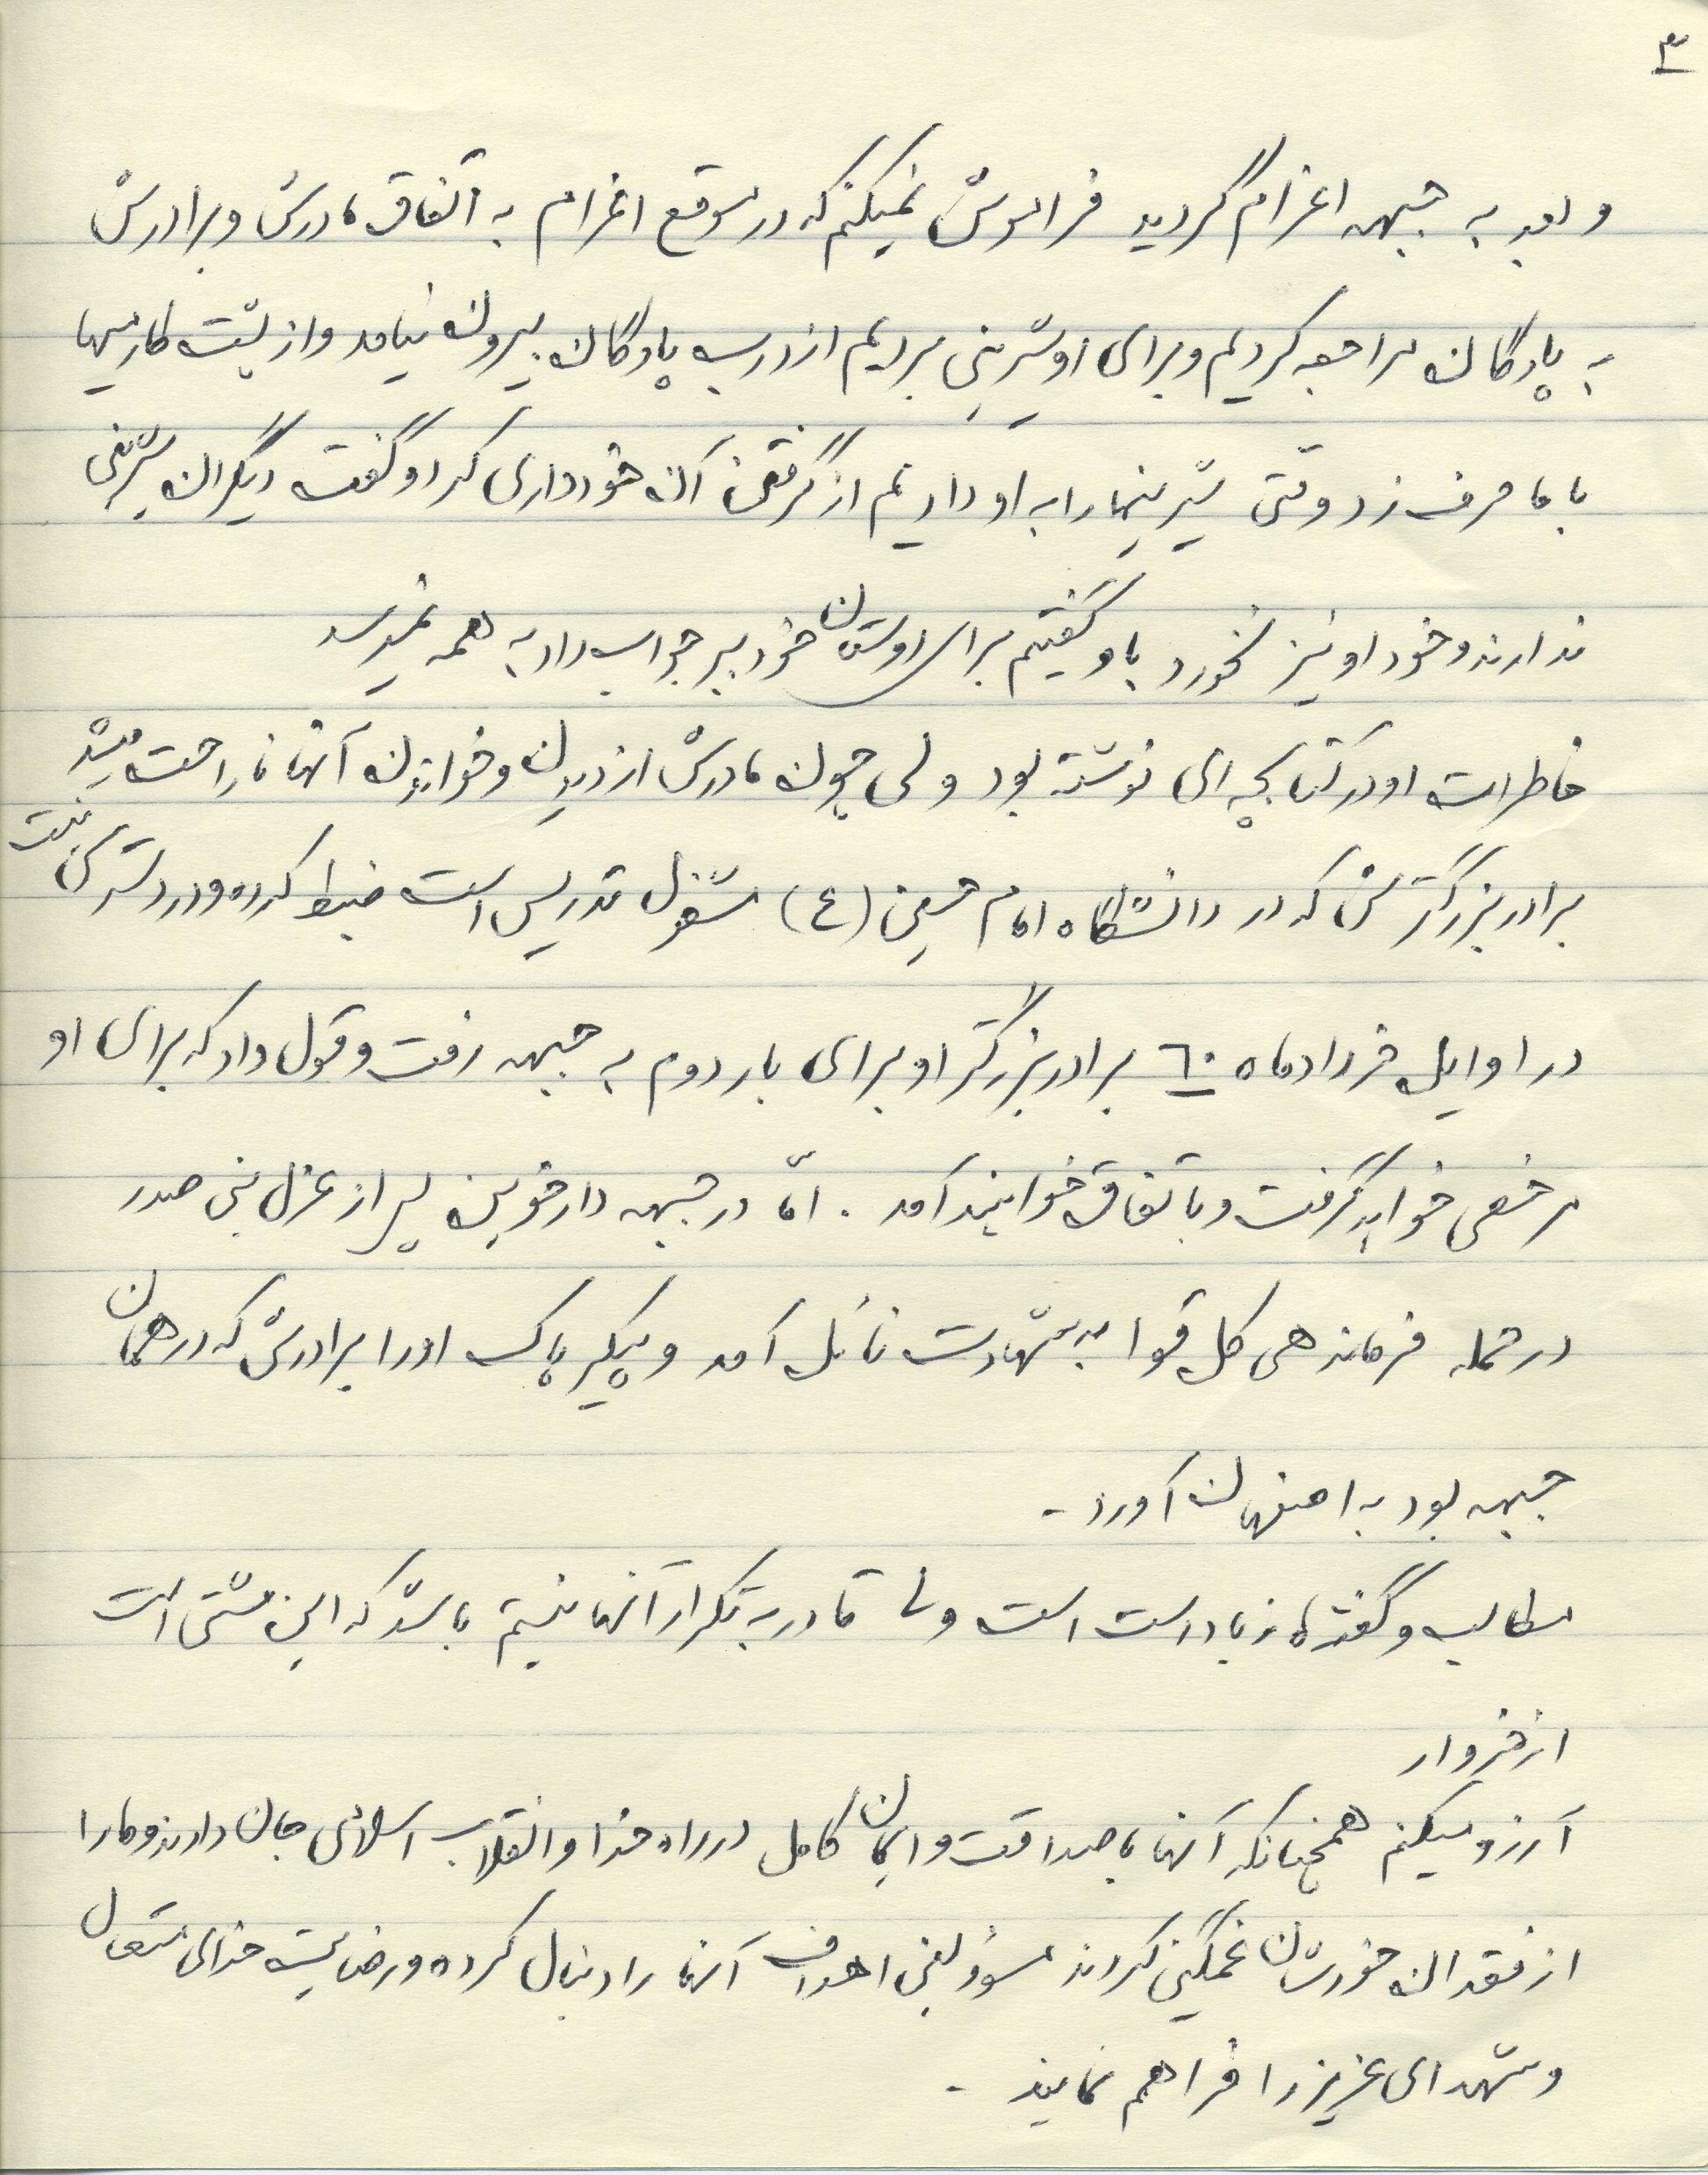 ۳
و بعد به جبهه اعزام گردید فراموش نمیکنم که در موقع اعزام به اتفاق مادرش و برادرش
به پادگان مراجعه کردیم و برای او شیرینی بردیم از درب پادگان بیرون نیامد و از پشت
با ما حرف زد وقتی شیرینیها را به او دادیم از گرفتن آن خودداری کرد و گفت دیگران شیرینی
ندارند و خود او نیز نخورد باو گفتیم برای دوستان خود ببر جواب داد به همه نمیرسد
خاطرات او در کتابچه ای نوشته بود ولی چون مادرش از دیدن و خواندن آنها ناراحت میشد
برادر بزرگترش که در دانشگاه امام حسین (ع) مشغول تدریس است ضبط کرده و در دسترس نیست
در اوایل خرداد ماه ٦٠ برادر بزرگتر او برای بار دوم به جبهه رفت و قول داد که برای او
مرخصی خواهد گرفت و باتفاق خواهند آمد . امّا در جبهه دارخوین پس از عزل بنی صدر
در حمله فرماندهی کل قوا به شهادت نائل آمد و پیکر پاک او را برادرش که در همان
جبهه بود به اصفهان آورد -
مطالب و گفته ها زیاد است ولی قادر به تکرار آنها نیستم باشد که این مشتی است
از خروار
آرزو میکنم همچنانکه آنها با صداقت و ایمان کامل در راه خدا و انقلاب اسلامی جان دادند و ما را
از فقدان خودشان غمگین کردند مسئولین اهداف آنها را دنبال کرده و رضایت خدای متعال
و شهدای عزیز را فراهم نمایند -